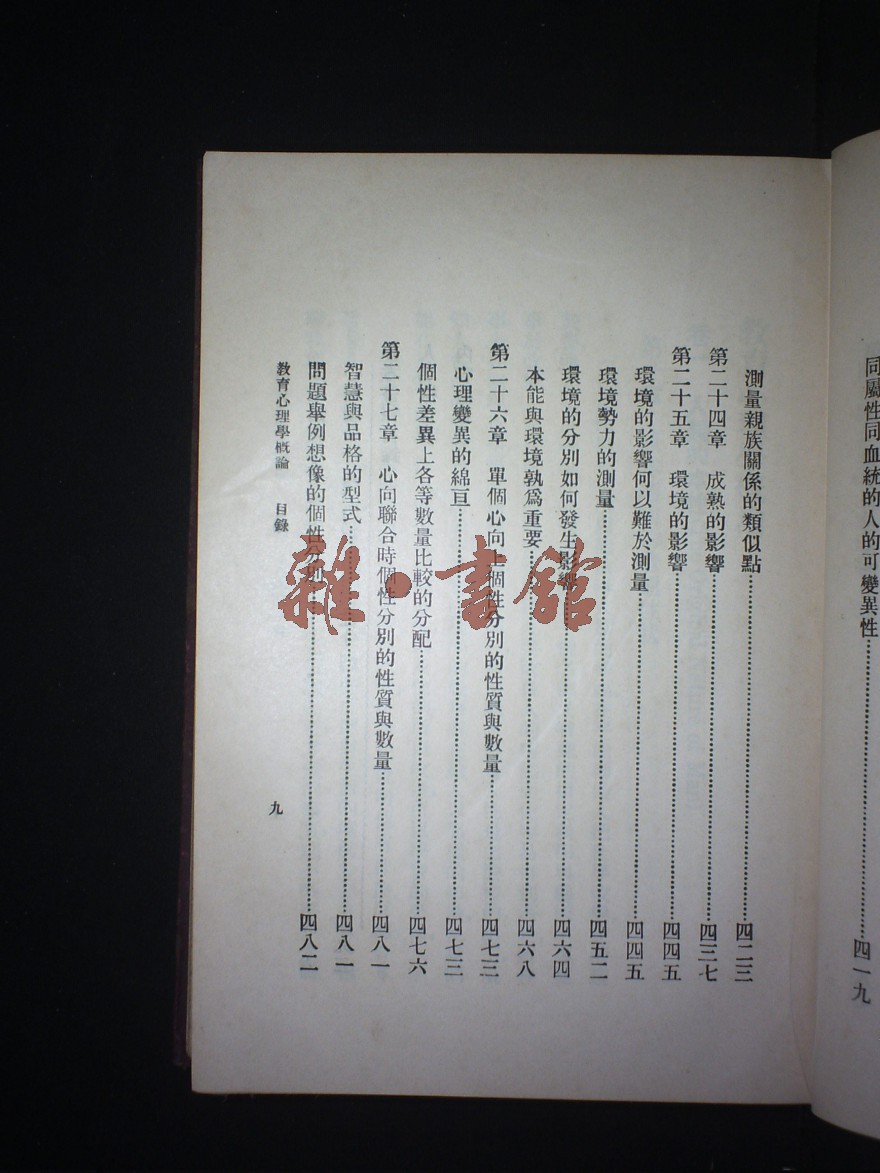 同屬性同血統的人的可變異性…………四一九
測量親族關係的類似點…………四二三
第二十四章　成熟的影響…………四三七
第二十五章　環境的影響…………四四五
環境的影響何以難於測量…………四四五
環境勢力的測量…………四五二
環境的分別如何發生影響…………四六四
本能與環境孰爲重要…………四六八
第二十六章　單個心向上個性分別的性質與數量…………四七三
心理變異的綿亘…………四七三
個性差異上各等數量比較的分配…………四七六
第二十七章　心向聯合時個性分別的性質與數量…………四八一
智慧與品格的型式…………四八一
問題舉例想像的個性分別…………四八二
教育心理學概論　目錄
九
雜·書館